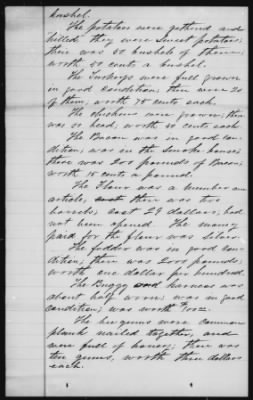 bushel.
The potatoes were gathered and
hilled. they were sweet potatoes;
there was 50 bushels of them,
worth 50 cents a bushel.
The Turkeys were full grown
in good condition, there were 20
of them, worth 75 cents each.
The chickens were grown; there
was 50 head, worth 20 cents each.
The Bacon was in good con-
dition; was in the smoke house;
there was 200 pounds of Bacon;
worth 15 cents a pound.
The Flour was a number one
article, there was two
barrels; cost 29 dollars; had
not been opened. The money
paid for the flour was silver.
The fodder was in good con-
dition; there was 2000 pounds;
worth one dollar per hundred.
The Buggy and harness was
about half worn; was in good
condition; was worth $100 00/.
The bee gums were common
plank nailed together, and
were full of honey; there was
ten gums, worth three dollars
each.